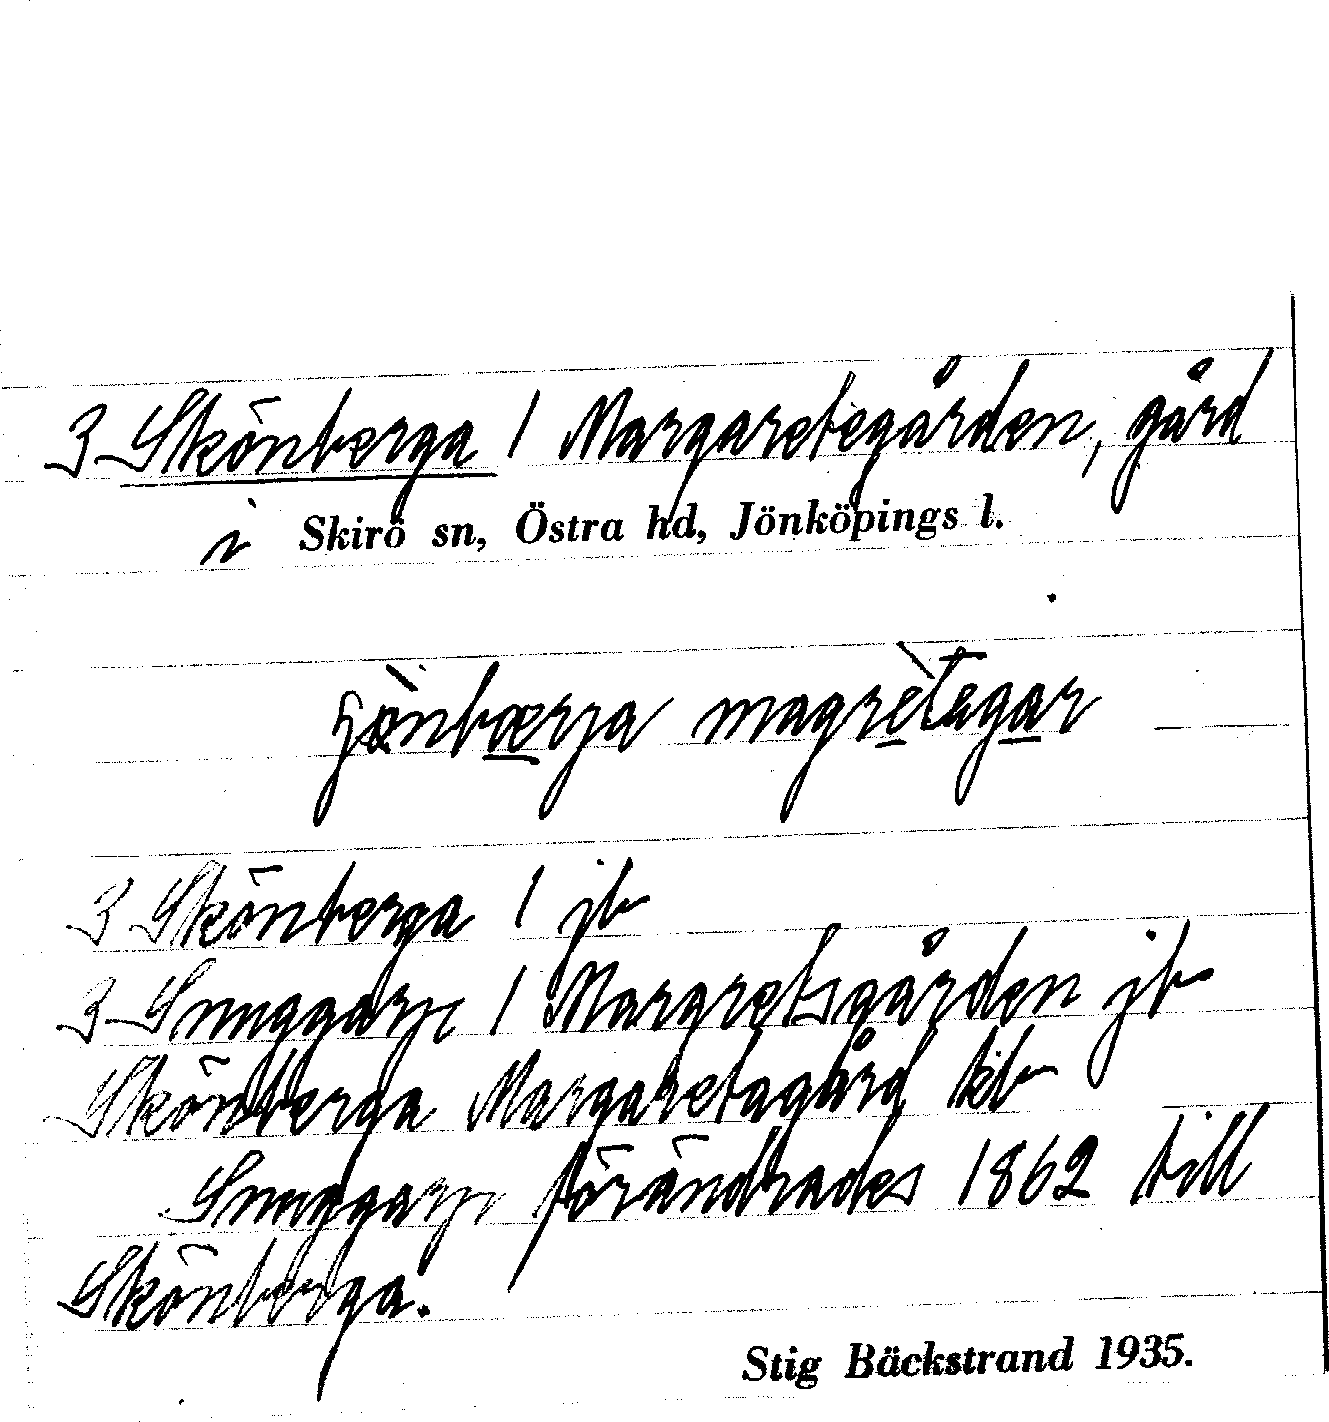 3 Skönberga 1 Margaretegården, gård
i Skirö sn, Östra hd, Jönköpings l.
magrètegar
3 Skönberga 1 jb
3 Snuggarp 1 Margretsgården jb
Skönberga Margaretagård kb
Snuggarp förändrades 1862 till
Skönberga.
Stig Bäckstrand 1935.